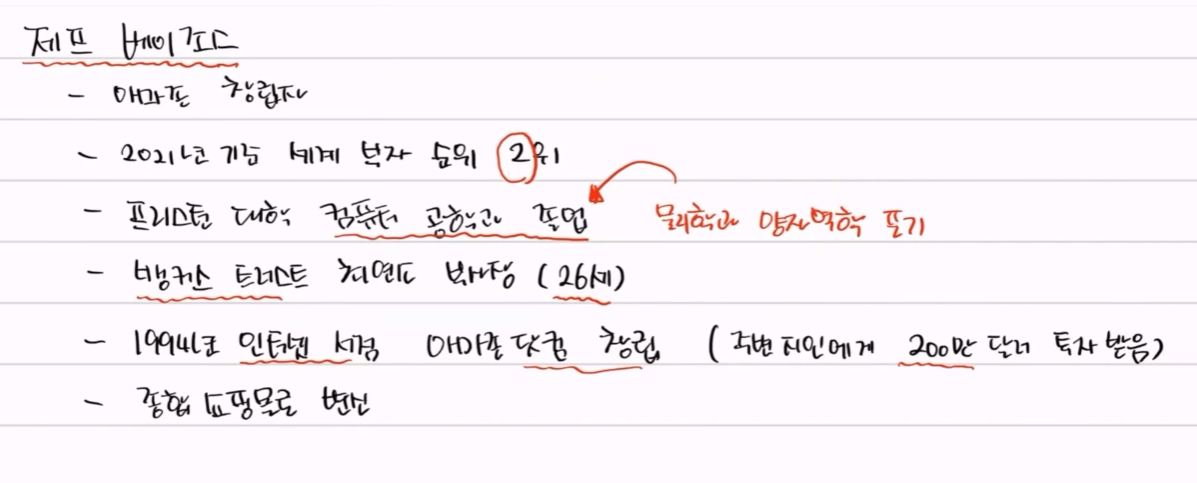 제프 베이조스
- 아마존 창립자
- 2021년 기준 세계 부자 순위 2위
- 프린스턴 대학 컴퓨터 공학과 졸업 물리학과 양자역학 포기
- 뱅커스 트러스트 최연소 부사장 (26세)
- 1994년 인터넷 서점 아마존닷컴 창립 (주변 지인에게 200만 달러 투자 받음)
- 종합 쇼핑몰로 변신